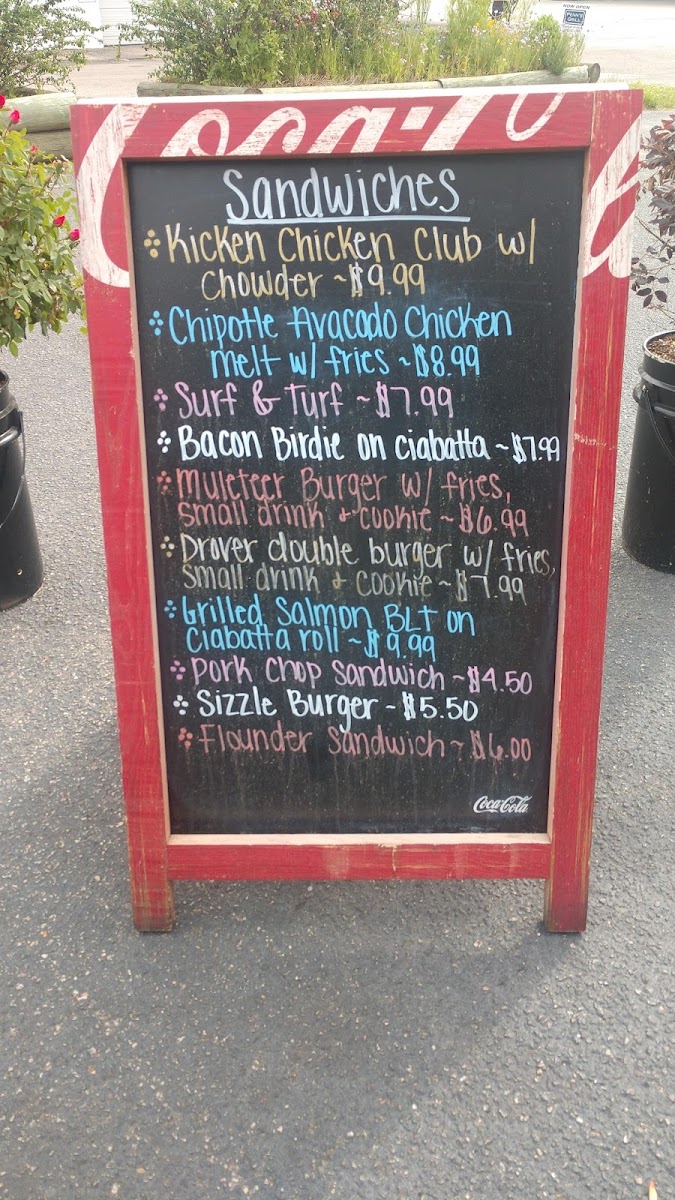 NOW OPEN
Coca-Cola
Sandwiches
Kicken Chicken Club w/
Chowder ~ $9.99
Chipotle Avacado Chicken
melt w/ fries ~ $8.99
Surf & Turf ~ $7.99
Bacon Birdie on ciabatta ~ $7.99
Muleteer Burger w/ fries,
small drink + cookie ~ $6.99
Drover double burger w/ fries,
small drink + cookie ~ $7.99
Grilled Salmon BLT on
Ciabatta roll ~ $9.99
Pork Chop Sandwich ~ $4.50
Sizzle Burger ~ $5.50
Flounder Sandwich ~ $6.00
Coca-Cola